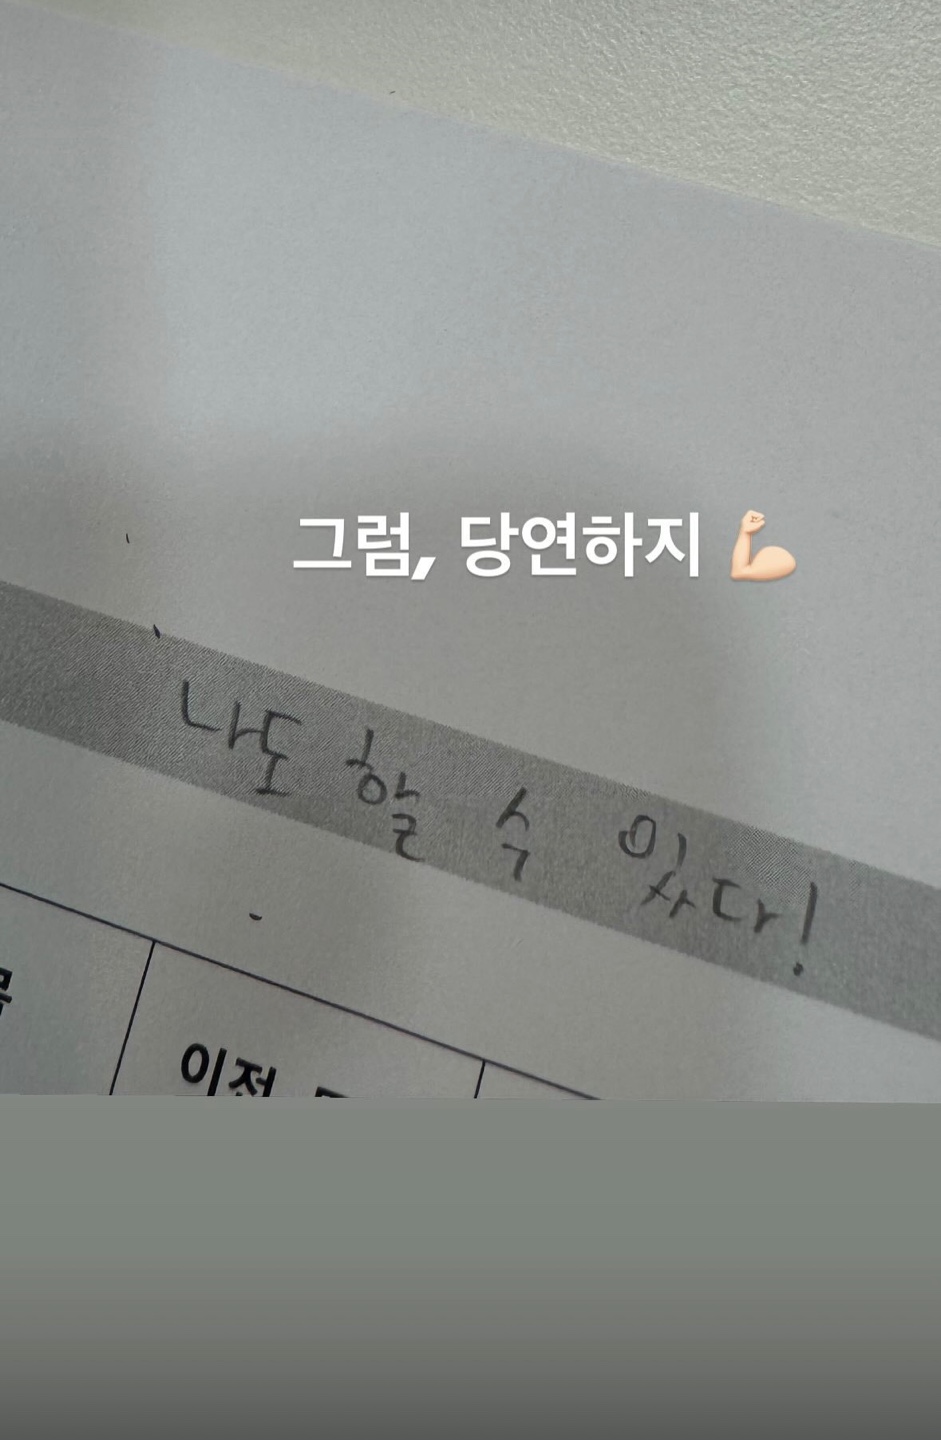 그럼, 당연하지 💪🏻
나도 할 수 있다!
이전